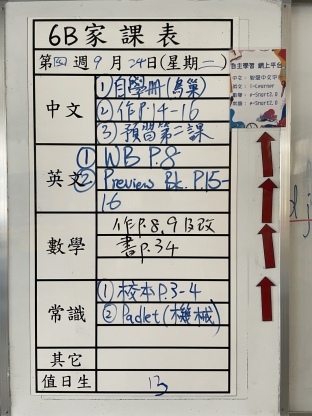 6B家課表
第四週9月24日(星期二)
中文
①自學冊(鳥巢)
②作P.14-16
③預習第二課
英文
① WB P.8
② Preview Bk. P.15-
16
數學
作P.8,9及改
書P.34
常識
①校本P.3-4
②Padlet(機械)
其它
值日生
13
自主學習 網上平台
中文：智愛中文平
英文：i-Learner
數學：e-Smart2.0
常識：e-Smart2.0